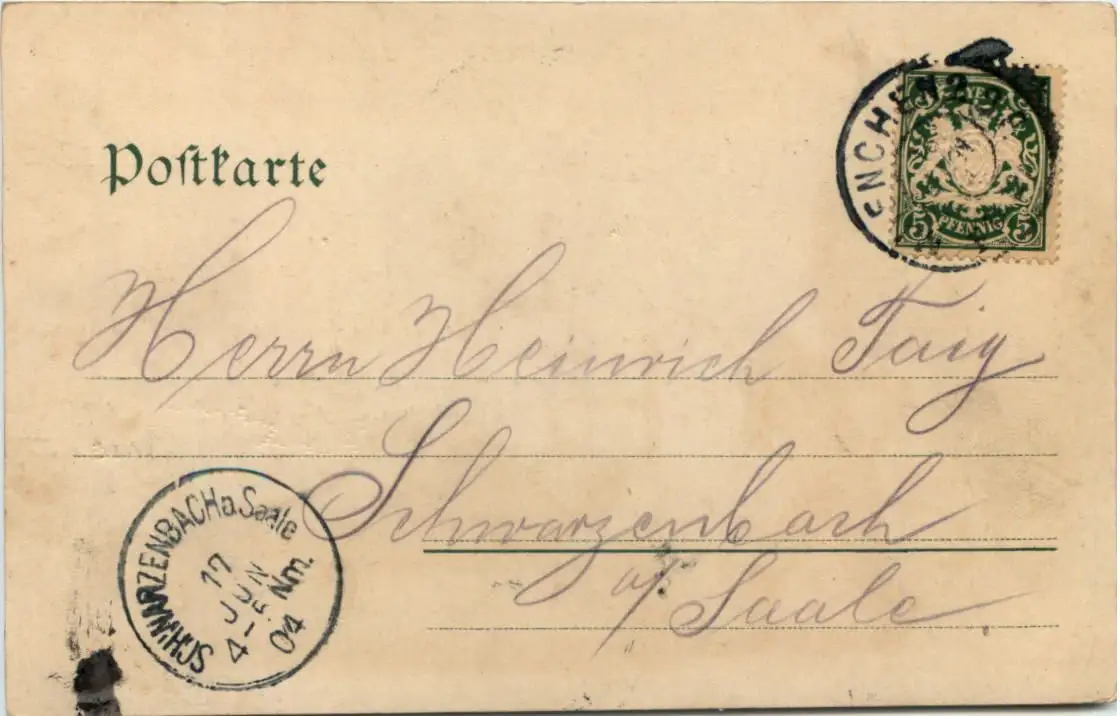 Postkarte
BAYERN
5 PFENNIG 5
Herrn Heinrich Taig
Schwarzenbach
a/ Saale.
SCHWARZENBACH a. Saale
12
JUN
4-5 Nm.
04